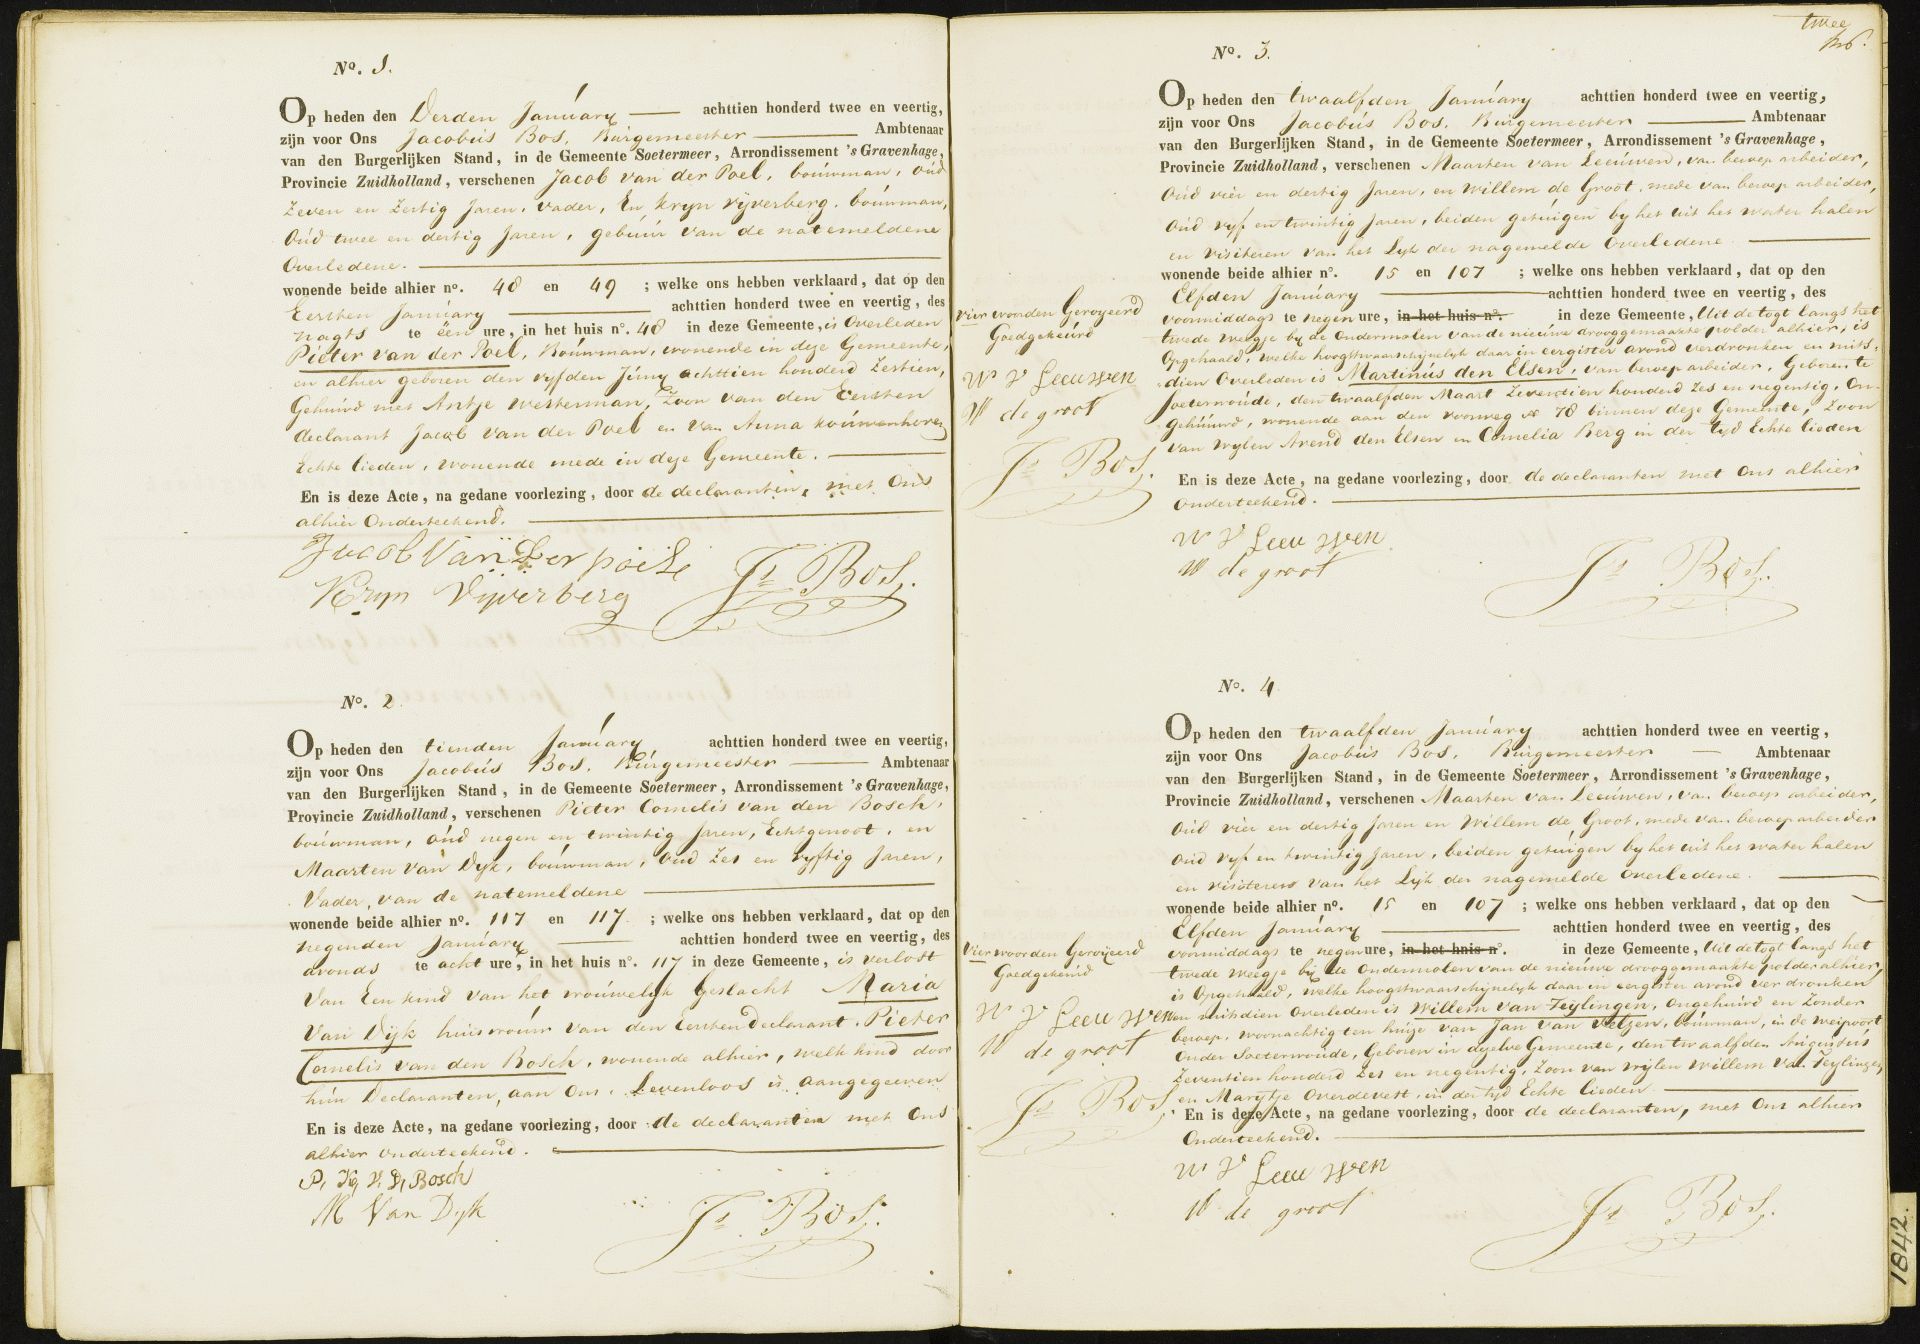 No. 1.
Op heden den Derden January achttien honderd twee en veertig,
zijn voor Ons Jacobus Bos, Burgemeester Ambtenaar
van den Burgerlijken Stand, in de Gemeente Soetermeer, Arrondissement 's Gravenhage,
Provincie Zuidholland, verschenen Jacob van der Poel, bouwman, oud
Zeven en Zestig Jaren, vader, En Kryn Vyverberg, bouwman,
Oud twee en dertig Jaren, gebuur van de natemeldene
Overledene.
wonende beide alhier no. 48 en 49 ; welke ons hebben verklaard, dat op den
Eersten January achttien honderd twee en veertig, des
nagts te één ure, in het huis no. 48 in deze Gemeente, is Overleden
Pieter van der Poel, Bouwman, wonende in deze Gemeente,
en alhier geboren den vyfden Juny achttien honderd Zestien,
Gehuwd met Antje Westerman, Zoon van den Eersten
declarant Jacob van der Poel en van Anna Kouwenhoven
Echte lieden, wonende mede in deze Gemeente.
En is deze Acte, na gedane voorlezing, door de declaranten, met Ons
alhier Onderteekend.
Jacob Van der poele
Kryn Vyverberg Js Bos.
No. 2.
Op heden den tienden January achttien honderd twee en veertig,
zijn voor Ons Jacobus Bos, Burgemeester Ambtenaar
van den Burgerlijken Stand, in de Gemeente Soetermeer, Arrondissement 's Gravenhage,
Provincie Zuidholland, verschenen Pieter Cornelis van den Bosch,
bouwman, oud negen en twintig Jaren, Echtgenoot, en
Maarten van Dyk, bouwman, Oud Zes en vyftig Jaren,
Vader, van de natemeldene
wonende beide alhier no. 117 en 117. ; welke ons hebben verklaard, dat op den
negenden January achttien honderd twee en veertig, des
avonds te acht ure, in het huis no. 117 in deze Gemeente, is verlost
Van Een kind van het vrouwelyk Geslacht Maria
Van Dyk huisvrouw van den Eersten Declarant, Pieter
Cornelis van den Bosch, wonende alhier, welk kind door
hun Declaranten, aan Ons, Levenloos is aangegeeven
En is deze Acte, na gedane voorlezing, door de declaranten met Ons
alhier onderteekend.
V. D. Bosch
M Van Dyk Js Bos.
twee
No. 3.
Op heden den twaalfden January achttien honderd twee en veertig,
zijn voor Ons Jacobus Bos, Burgemeester Ambtenaar
van den Burgerlijken Stand, in de Gemeente Soetermeer, Arrondissement 's Gravenhage,
Provincie Zuidholland, verschenen Maarten van Leeuwen, van beroep arbeider,
Oud vier en dertig Jaren, en Willem de Groot, mede van beroep arbeider,
Oud vyf en twintig Jaren, beiden getuigen by het uit het water halen
en visiteren van het Lyk der nagemelde Overledene
wonende beide alhier no. 15 en 107 ; welke ons hebben verklaard, dat op den
Elfden January achttien honderd twee en veertig, des
voormiddags te negen ure, in het huis no. in deze Gemeente, Uit de togt langs het
twede weegje by de Ondermolen van de nieuwe drooggemaakte polder alhier, is
Opgehaald, welke hoogstwaarschynelyk daar in eergister avond verdronken en mits-
dien Overleden is Martinus den Elsen, van beroep arbeider, Geboren te
Soeterwoude, den twaalfden Maart Zeventien honderd Zes en negentig, On-
gehuuwd, wonende aan den voorweg no 78 binnen deze Gemeente, Zoon
van Wylen Arend den Elsen en Cornelia Berg in der tyd Echte lieden
En is deze Acte, na gedane voorlezing, door de declaranten met Ons alhier
Onderteekend.
vier woorden Geroyeerd
Goedgekeurd
M V Leeuwen
W de groot
Js Bos.
M V Leeuwen
W de groot Js Bos.
No. 4.
Op heden den twaalfden January achttien honderd twee en veertig,
zijn voor Ons Jacobus Bos, Burgemeester Ambtenaar
van den Burgerlijken Stand, in de Gemeente Soetermeer, Arrondissement 's Gravenhage,
Provincie Zuidholland, verschenen Maarten van Leeuwen, van beroep arbeider,
Oud vier en dertig Jaren en Willem de Groot, mede van beroep arbeider
Oud vyf en twintig Jaren, beiden getuigen by het uit het water halen
en visiteren van het Lyk der nagemelde Overledene.
wonende beide alhier no. 15 en 107 ; welke ons hebben verklaard, dat op den
Elfden January achttien honderd twee en veertig, des
voormiddags te negen ure, in het huis no. in deze Gemeente, Uit de togt langs het
twede weegje by de Ondermolen van de nieuwe drooggemaakte polder alhier,
is Opgehaald, welke hoogstwaarschynelyk daar in eergister avond verdronken
en mitsdien Overleden is Willem van Teylingen, Ongehuwd en Zonder
beroep, woonachtig ten huize van Jan van Velzen, bouwman, in de Weipoort
Onder Soeterwoude, Geboren in dezelve Gemeente, den twaalfden Augustus
Zeventien honderd Zes en negentig, Zoon van wylen Willem van Teylingen,
en Marytje Overdevest, in der tyd Echte lieden
En is deze Acte, na gedane voorlezing, door de declaranten, met Ons alhier
Onderteekend.
Vier woorden Geroyeerd
Goedgekeurd
M V Leeuwen
W de groot
Js Bos
M V Leeuwen
W de groot Js Bos.
1842.